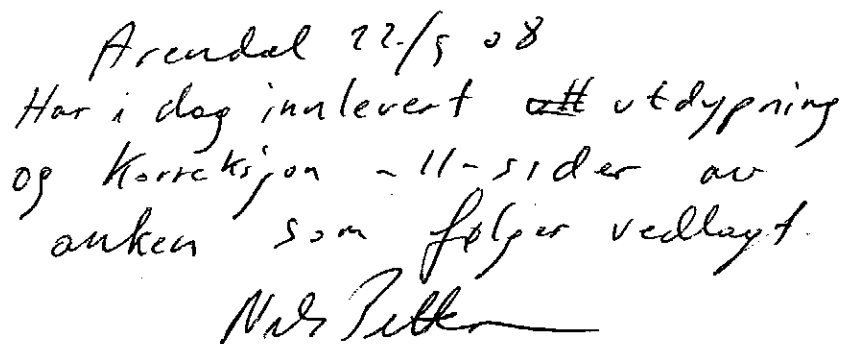 Arendal 22/5 08
Har i dag innlevert utdypning
og Korreksjon -11-sider av
anken som følger vedlagt.